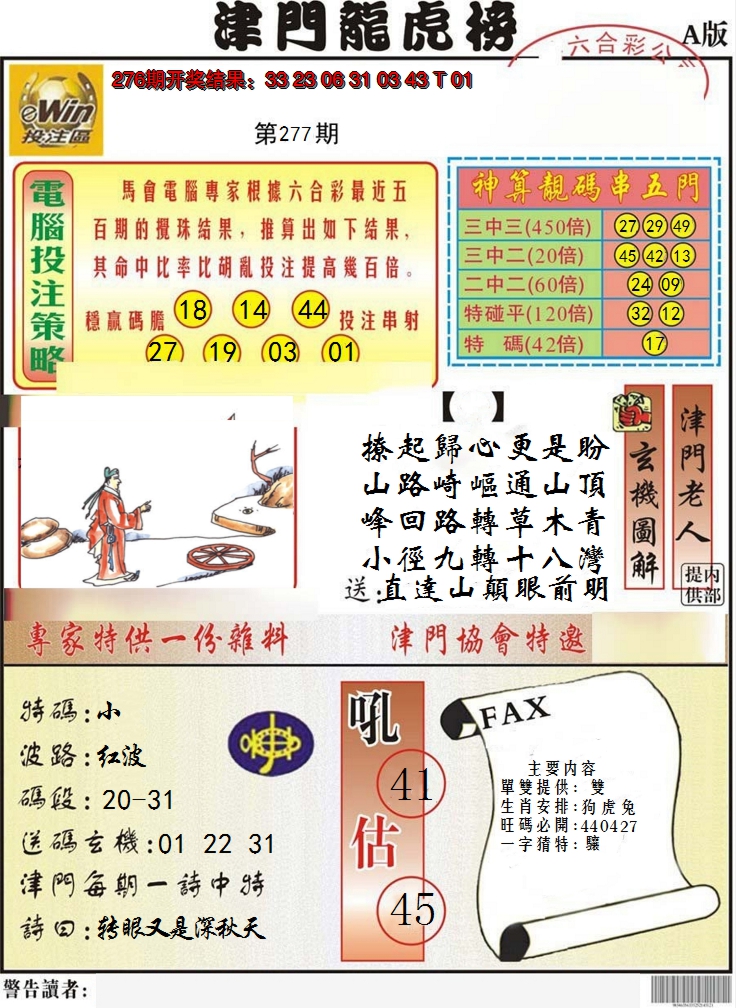 津門龍虎榜
A版
六合彩公
276期开奖结果：33 23 06 31 03 43 T 01
eWin
投注區
第277期
電腦投注策略
馬會電腦專家根據六合彩最近五
百期的攪珠结果，推算出如下结果，
其命中比率比胡亂投注提高幾百倍。
穩贏碼膽 18 14 44 投注串射
27 19 03 01
神算靚碼串五門
三中三(450倍) 27 29 49
三中二(20倍) 45 42 13
二中二(60倍) 24 09
特碰平(120倍) 32 12
特 碼(42倍) 17
【 】
撩起歸心更是盼
山路崎嶇通山頂
峰回路轉草木青
小徑九轉十八灣
送:直達山顛眼前明
玄機圖解
津門老人
内部提供
專家特供一份雜料
津門協會特邀
特碼:小
波路:红波
碼段:20-31
送碼玄機:01 22 31
津門每期一詩中特
詩曰:转眼又是深秋天
吼
41
估
45
FAX
主要内容
單雙提供: 雙
生肖安排:狗虎兔
旺碼必開:440427
一字猜特: 驤
警告讀者: